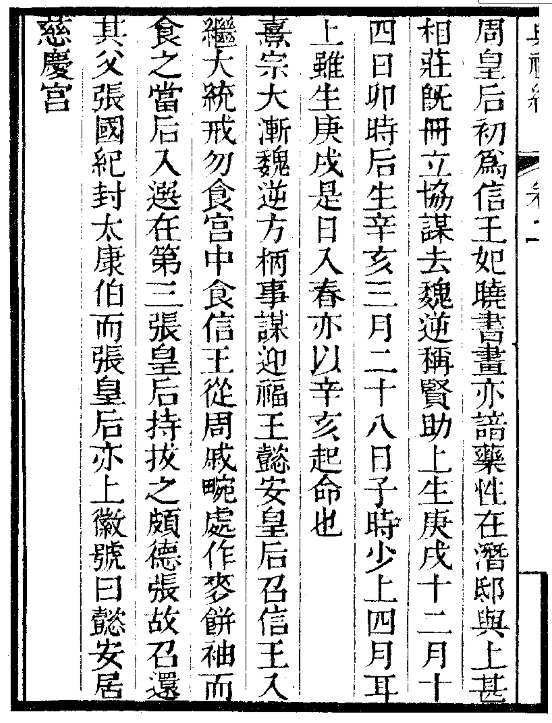 周皇后初爲信王妃曉書畫亦諳藥性在潛邸與上甚
相莊旣冊立協謀去魏逆稱賢助上生庚戌十二月十
四日卯時后生辛亥三月二十八日子時少上四月耳
上雖生庚戌是日入春亦以辛亥起命也
熹宗大漸魏逆方柄事謀迎福王懿安皇后召信王入
繼大統戒勿食宮中食信王從周戚畹處作麥餅袖而
食之當后入選在第三張皇后持拔之頗德張故召還
其父張國紀封太康伯而張皇后亦上徽號曰懿安居
慈慶宮